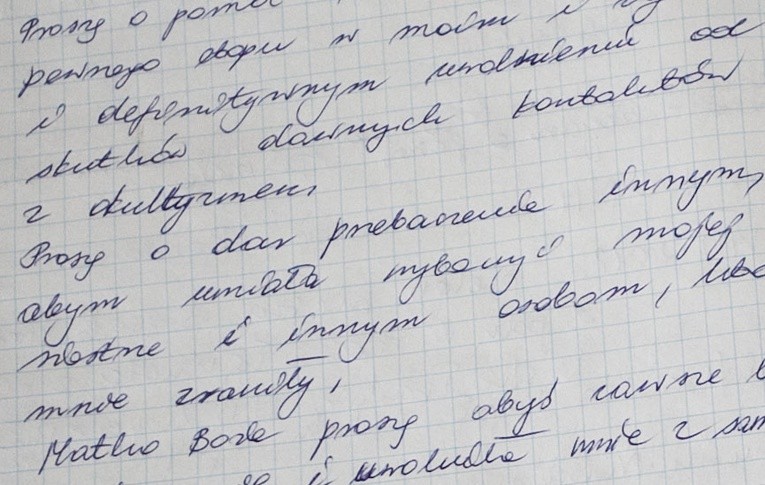 Proszę o pomoc
pewnego etapu w moim i
i definitywnym uwolnieniu od
skutków dawnych kontaktów
z okultyzmem,
Proszę o dar przebaczenia innym,
abym umiała wybaczyć mojej
siostrze i innym osobom, które
mnie zraniły,
Matko Boża proszę abyś zawsze
i uwolniła mnie z